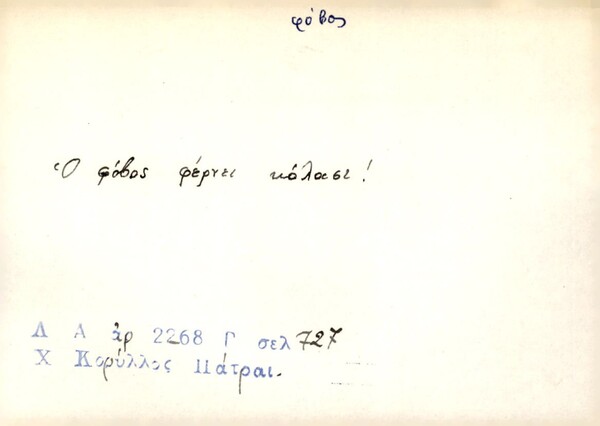 φόβος
Ὁ φόβος φέρνει κόλασι!
Λ Α ἀρ 2268 Γ σελ 727
Χ Κορύλλος Πάτραι.